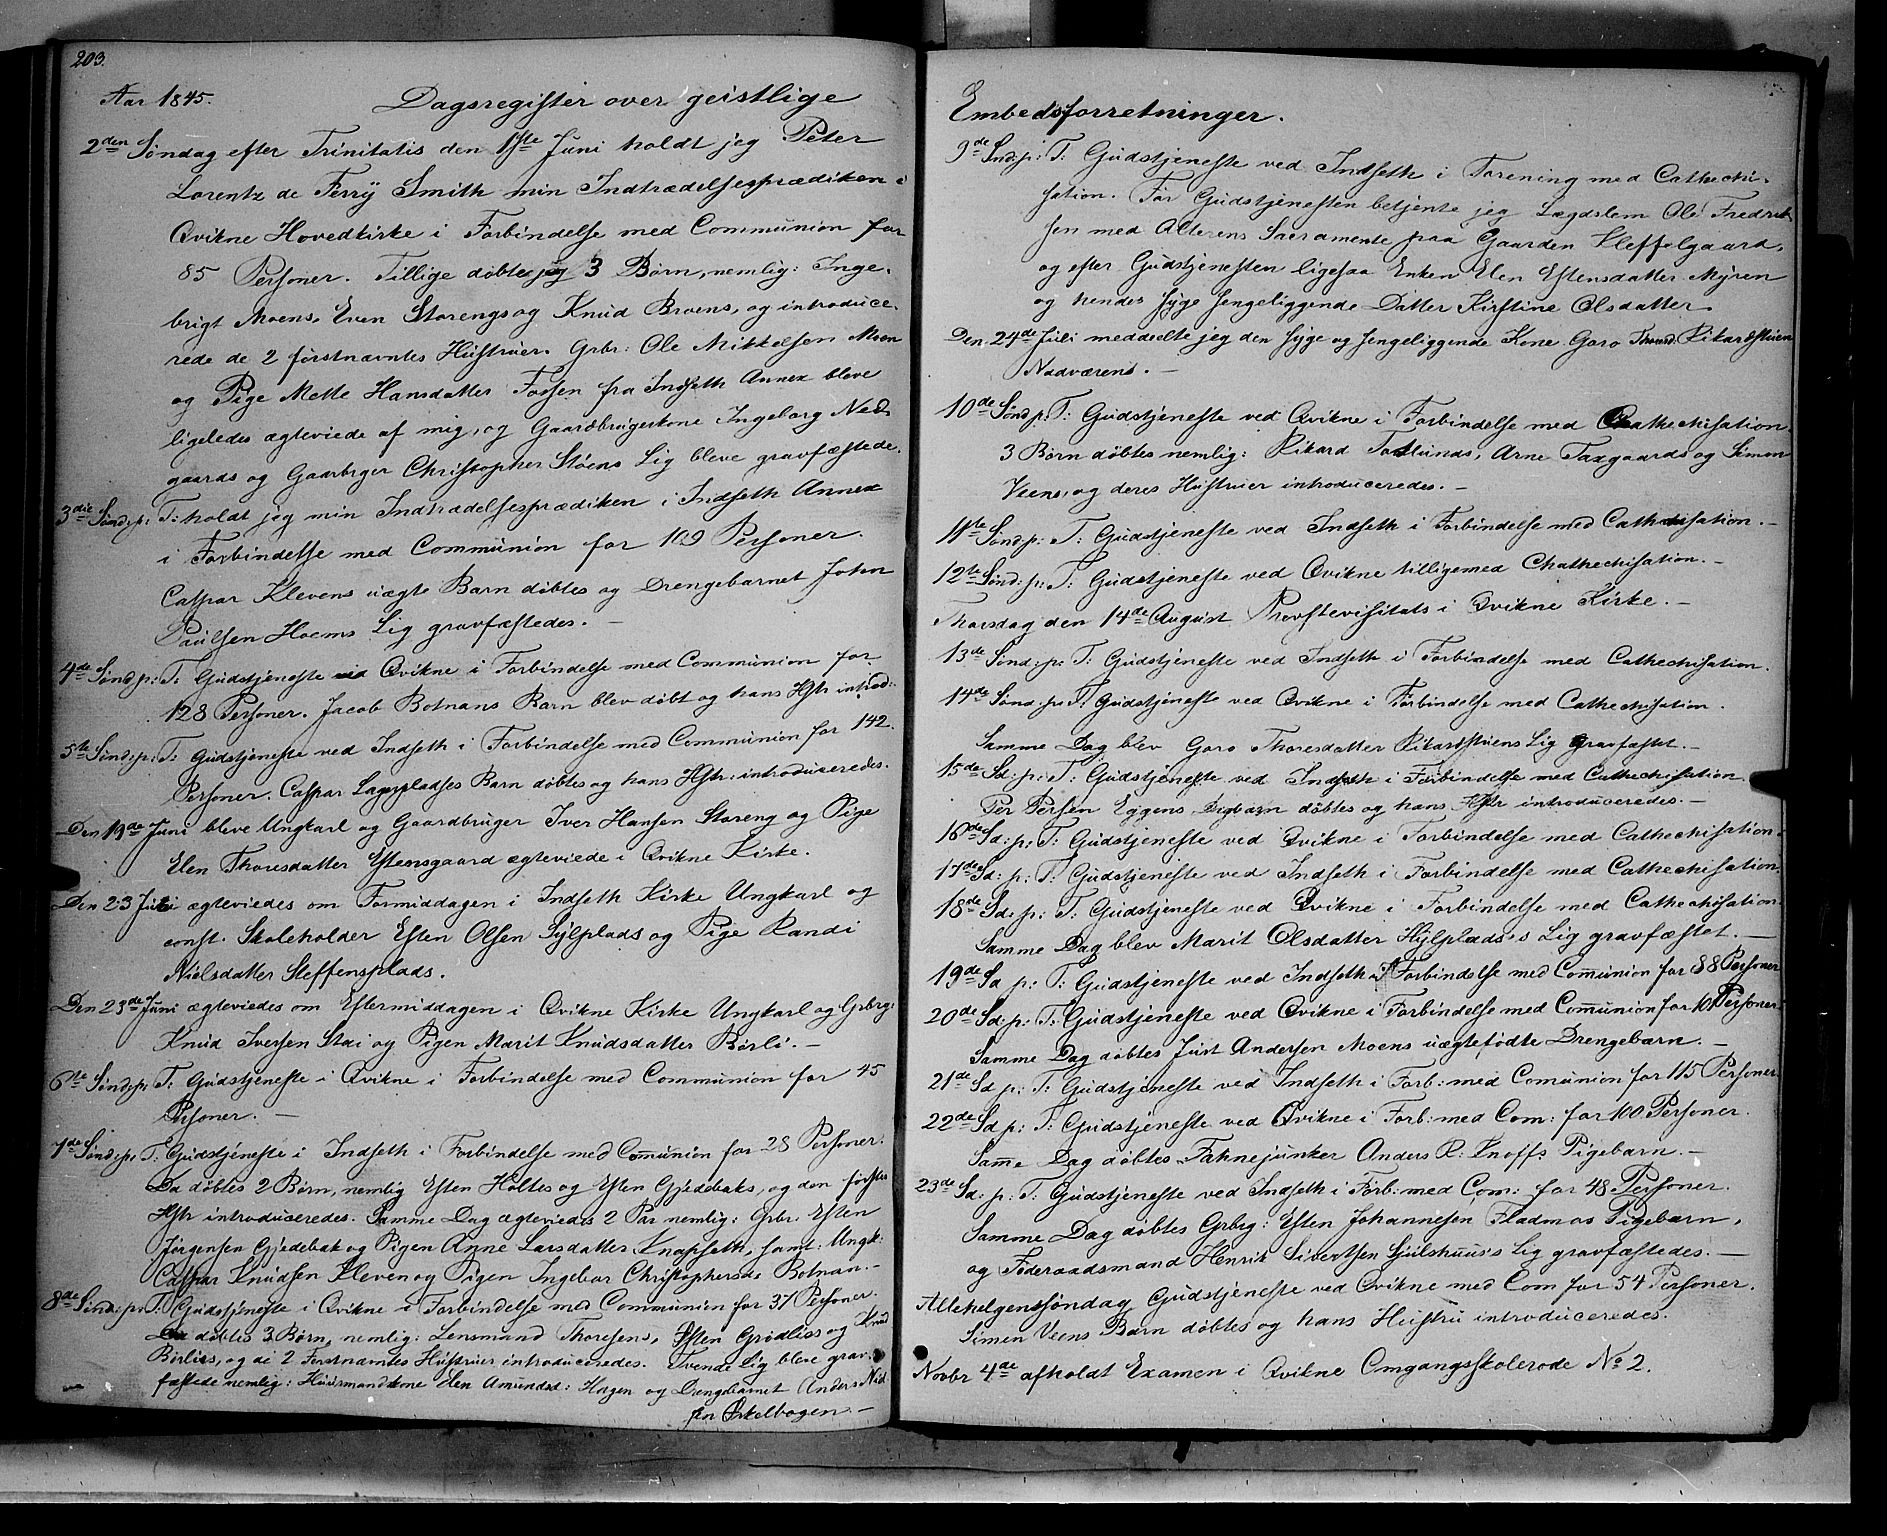 203.
Aar 1845. Dagsregister over geistlige
2den Søndag efter Trinitatis den 1ste Juni holdt jeg Peter
Lorentz de Ferrÿ Smith min Indtrædelsesprædiken i
Qvikne Hovedkirke i Forbindelse med Communion for
85 Personer. Tillige døbtes jeg 3 Børn, nemlig: Inge-
brigt Moens, Even Storengs og Knud Broens, og introduce-
rede de 2 førstnævntes Hustruer. Grbr: Ole Mikkelsen Moen
og Pige Mette Hansdatter Fossen fra Indseth Annex bleve
ligeledes ægteviede af mig, og Gaardbrugerkone Ingeborg Ned-
gaards og Gaarbrger Christopher Støens Lig bleve gravfæstede.
3die Sønd: p: T: holdt jeg min Indtrædelsesprædiken i Indseth Annex
i Forbindelse med Communion for 109 Personer.
Caspar Klevens uægte Barn døbtes og Drengebarnet John
Paulsen Hoems Lig gravfæstedes. —
4de Sønd: p: T: Gudstjeneste ved Qvikne i Forbindelse med Communion for
128 Personer. Jacob Botnans Barn blev døbt og hans Hstr introd:
5te Sønd: p: T: Gudstjeneste ved Indseth i Forbindelse med Communion for 142
Personer. Caspar Lagerpladses Barn døbtes og hans Hstr: introduceredes.
Den 19de Juni bleve Ungkarl og Gaardbruger Iver Hansen Storeng og Pige
Elen Thoresdatter Estensgaard ægteviede i Qvikne Kirke.
Den 23 Juni ægteviedes om Formiddagen i Indseth Kirke Ungkarl og
const. Skoleholder Esten Olsen Sylplads og Pige Randi
Nielsdatter Steffensplads.
Den 23de Juni ægteviedes om Eftermiddagen i Qvikne Kirke Ungkarl og Grbrg:
Knud Iversen Stai og Pigen Marit Knudsdatter Børli. —
6te Sønd: p: T: Gudstjeneste i Qvikne i Forbindelse med Communion for 45
Personer. —
7de Sønd: p: T: Gudstjeneste i Indseth i Forbindelse med Comunion for 28 Personer.
Da døbtes 2 Børn, nemlig Esten Holtes og Esten Gjedebaks, og den førstes
Hstr introduceredes. Samme Dag ægteviedes 2 Par nemlig: Grbr. Esten
Jørgensen Gjedebak og Pigen Anne Larsdatter Knapseth, samt: Ungk:
Caspar Knudsen Kleven og Pigen Ingebor Christophersd. Botnan. -
8de Sønd: p: T: Gudstjeneste i Qvikne i Forbindelse med Communion for 37 Personer.
Da døbtes 3 Børn, nemlig: Lensmand Thoresens, Esten Grødliis og Knud
Børliis, og de 2 Førstnævntes Hustruer introduceredes. Tvende Lig bleve grav-
fæstede nemlig: Huusmandskone Elen Amundsd: Hagen og Drengebarnet Anders Nil
sen Orkelbogen. —
Embedsforretninger.
9de Snd: p: T: Gudstjeneste ved Indseth i Forening med Cathechi-
sation. Før Gudstjenesten betjente jeg Lægdslem Ole Fredrik
sen med Alterens Sacramente paa Gaarden Steffelgaard,
og efter Gudstjenesten ligesaa Enken Elen Estensdatter Myren
og hendes syge sengeliggende Datter Kirstine Olsdatter.
Den 24de Juli meddeelte jeg den syge og sengeliggende Kone Goro Thoresd. Rikardstuen
Nadveren. —
10de Sønd: p: T: Gudstjeneste ved Qvikne i Forbindelse med Cathechisation.
3 Børn døbtes nemlig: Rikard Toslunds, Arne Taxgaards og Simon
Veens, og deres Hustruer introduceredes. —
11te Sønd: p: T: Gudstjeneste ved Indseth i Forbindelse med Cathechisation. —
12te Sønd: p: T: Gudstjeneste ved Qvikne tilligemed Chathechisation. —
Thorsdag den 14de August Provstevisitats i Qvikne Kirke. —
13de Sønd: p: T: Gudstjeneste ved Indseth i Forbindelse med Cathechisation.
14de Sønd: p: T: Gudstjeneste ved Qvikne i Forbindelse med Cathechisation.
Samme Dag blev Goro Thoresdatter Rikardstuens Lig gravfæstet. —
15de Sd: p: T: Gudstjeneste ved Indseth i Forbindelse med Cathechisation
Per Persen Eggens Pigbarn døbtes og hans Hstr introduceredes. —
16de Sd: p: T: Gudstjeneste ved Qvikne i Forbindelse med Cathechisation.
17de Sd: p: T: Gudstjeneste ved Indseth i Forbindelse med Cathechisation.
18de Sd: p: T: Gudstjeneste ved Qvikne i Forbindelse med Cathechisation.
Samme Dag blev Marit Olsdatter Hylplads's Lig gravfæstet. —
19de Sd p: T: Gudstjeneste ved Indseth i Forbindelse med Comunion for 88 Personer
20de Sd: p: T: Gudstjeneste ved Qvikne i Forbindelse med Comunion for 101 Personer
Samme Dag døbtes Just Andersen Moens uægtefødte Drengebarn. —
21de Sd p: T: Gudstjeneste ved Indseth i Forb: med Comunion for 115 Personer.
22de Sd p: T: Gudstjeneste ved Qvikne i Forb: med Com: for 100 Personer.
Same Dag døbtes Fahnejunker Anders R: Knoffs Pigebarn. —
23de Sd: p: T: Gudstjeneste ved Indseth i Forb: med Com: for 48 Personer.
Samme Dag døbtes Grbrg: Esten Johannesen Fladmos Pigebarn,
og Føderaadsmand Henrik Sivertsen Gjulshuus's Lig gravfæstedes. —
Allehelgenssøndag Gudstjeneste ved Qvikne med Com for 54 Personer.
Simen Veens Barn døbtes og hans Hustru introduceredes.
Novbr 4de afholdt Examen i Qvikne Omgangsskolerode No 2.